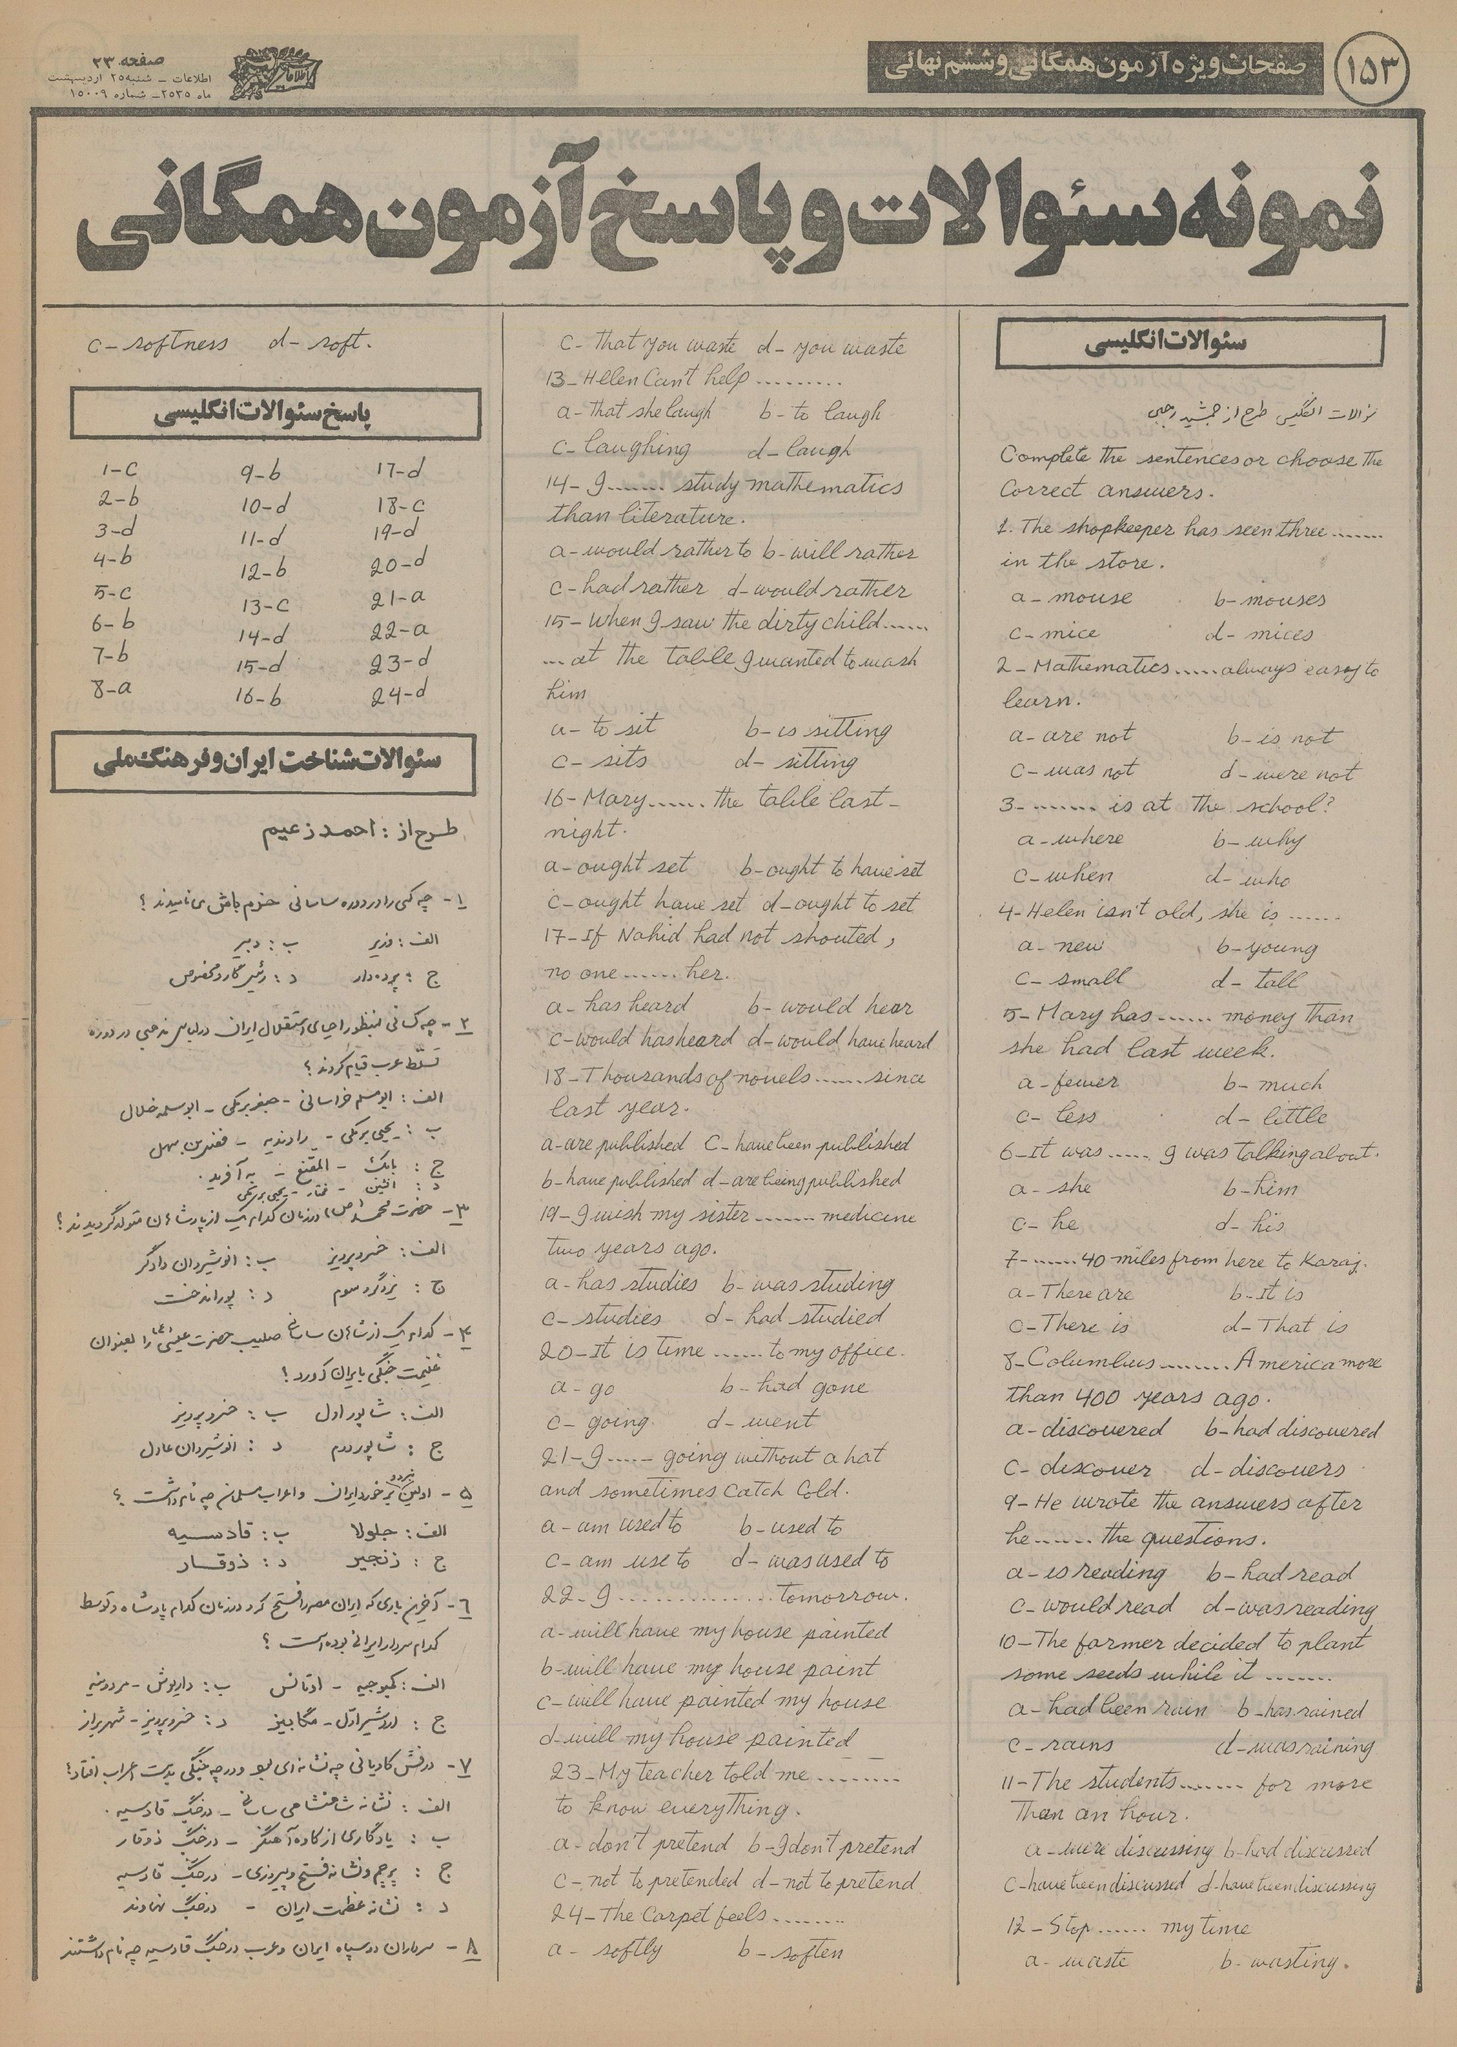 ۱۵۳
صفحات ویژه آزمون همگانی و ششم نهائی
صفحه ۲۳
اطلاعات – شنبه ۲۵ اردیبهشت
ماه ۲۵۳۵ – شماره ۱۵۰۰۹
نمونه سئوالات و پاسخ آزمون همگانی
سئوالات انگلیسی
سئوالات انگلیسی طرح از جمشید رجبی
Complete the sentences or choose the
Correct answers.
1. The shopkeeper has seen three ........
in the store.
a – mouse b – mouses
c – mice d – mices
2 – Mathematics ...... always easy to
learn.
a – are not b – is not
c – was not d – were not
3 – ........ is at the school?
a – where b – why
c – when d – who
4 – Helen isn't old, she is ......
a – new b – young
c – small d – tall
5 – Mary has ....... money than
she had last week.
a – fewer b – much
c – less d – little
6 – It was ..... I was talking about.
a – she b – him
c – he d – his
7 – ....... 40 miles from here to Karaj.
a – There are b – It is
c – There is d – That is
8 – Columbus ......... America more
than 400 years ago.
a – discovered b – had discovered
c – discover d – discovers
9 – He wrote the answers after
he ....... the questions.
a – is reading b – had read
c – would read d – was reading
10 – The farmer decided to plant
some seeds while it ........
a – had been rain b – has rained
c – rains d – was raining
11 – The students ........ for more
than an hour.
a – were discussing b – had discussed
c – have been discussed d – have been discussing
12 – Stop ....... my time
a – waste b – wasting.
c – that you waste d – you waste
13 – Helen Can't help ..........
a – that she laugh b – to laugh
c – laughing d – laugh
14 – I ........ study mathematics
than literature.
a – would rather to b – will rather
c – had rather d – would rather
15 – When I saw the dirty child ......
... at the table I wanted to wash
him
a – to sit b – is sitting
c – sits d – sitting
16 – Mary ....... the table last –
night.
a – ought set b – ought to have set
c – ought have set d – ought to set
17 – If Nahid had not shouted,
no one ....... her.
a – has heard b – would hear
c – would has heard d – would have heard
18 – Thousands of novels ....... since
last year.
a – are published c – have been published
b – have published d – are being published
19 – I wish my sister ........ medicine
two years ago.
a – has studies b – was studing
c – studies d – had studied
20 – It is time ....... to my office.
a – go b – had gone
c – going. d – went
21 – I ...... going without a hat
and sometimes Catch Cold.
a – am used to b – used to
c – am use to d – was used to
22 – I ................. tomorrow.
a – will have my house painted
b – will have my house paint
c – will have painted my house
d – will my house painted
23 – My teacher told me .........
to know everything.
a – don't pretend b – I don't pretend
c – not to pretended d – not to pretend
24 – The Carpet feels ........
a – softly b – soften
c – softness d – soft.
پاسخ سئوالات انگلیسی
1-c 9-b 17-d
2-b 10-d 18-c
3-d 11-d 19-d
4-b 12-b 20-d
5-c 13-c 21-a
6-b 14-d 22-a
7-b 15-d 23-d
8-a 16-b 24-d
سئوالات شناخت ایران و فرهنگ ملی
طرح از : احمد زعیم
۱- چه کسی را در دوره ساسانی خرم باش می نامیدند ؟
الف : وزیر ب : دبیر
ج : پرده دار د : رئیس گارد مخصوص
۲- چه کسانی بمنظور احیای استقلال ایران در لباس مذهبی در دوره
تسلط عرب قیام کردند ؟
الف : ابومسلم خراسانی - جعفر برمکی - ابوسلمه خلال
ب : یحیی برمکی - راوندیه - فضل بن سهل
ج : بابک - المقنع - به آفرید .
د : افشین - مختار - یحیی برمکی
۳- حضرت محمد (ص) در زمان کدام یک از پادشاهان متولد گردیدند ؟
الف : خسرو پرویز ب : انوشیروان دادگر
ج : یزدگرد سوم د : پوراندخت
۴- کدام یک از شاهان ساسانی صلیب حضرت عیسی (ع) را بعنوان
غنیمت جنگی بایران آورد ؟
الف : شاپور اول ب : خسرو پرویز
ج : شاپور دوم د : انوشیروان عادل
۵- اولین برخورد ایران و اعراب مسلمان چه نام داشت ؟
الف : جلولا ب : قادسیه
ج : زنجیر د : ذوقار
۶- آخرین باری که ایران مصر را فتح کرد در زمان کدام پادشاه و توسط
کدام سردار ایرانی بوده است ؟
الف : کمبوجیه - اوتانس ب : داریوش - مردونیه
ج : اردشیر اول - مگابیز د : خسرو پرویز - شهربراز
۷- درفش کاویانی چه نشانه ای بود و در چه جنگی بدست اعراب افتاد ؟
الف : نشانه شاهنشاهی ساسانی - در جنگ قادسیه .
ب : یادگاری از کاوه آهنگر - در جنگ ذوقار
ج : پرچم و نشانه فتح و پیروزی - در جنگ قادسیه
د : نشانه عظمت ایران - در جنگ نهاوند
۸- سرداران دو سپاه ایران و عرب در جنگ قادسیه چه نام داشتند